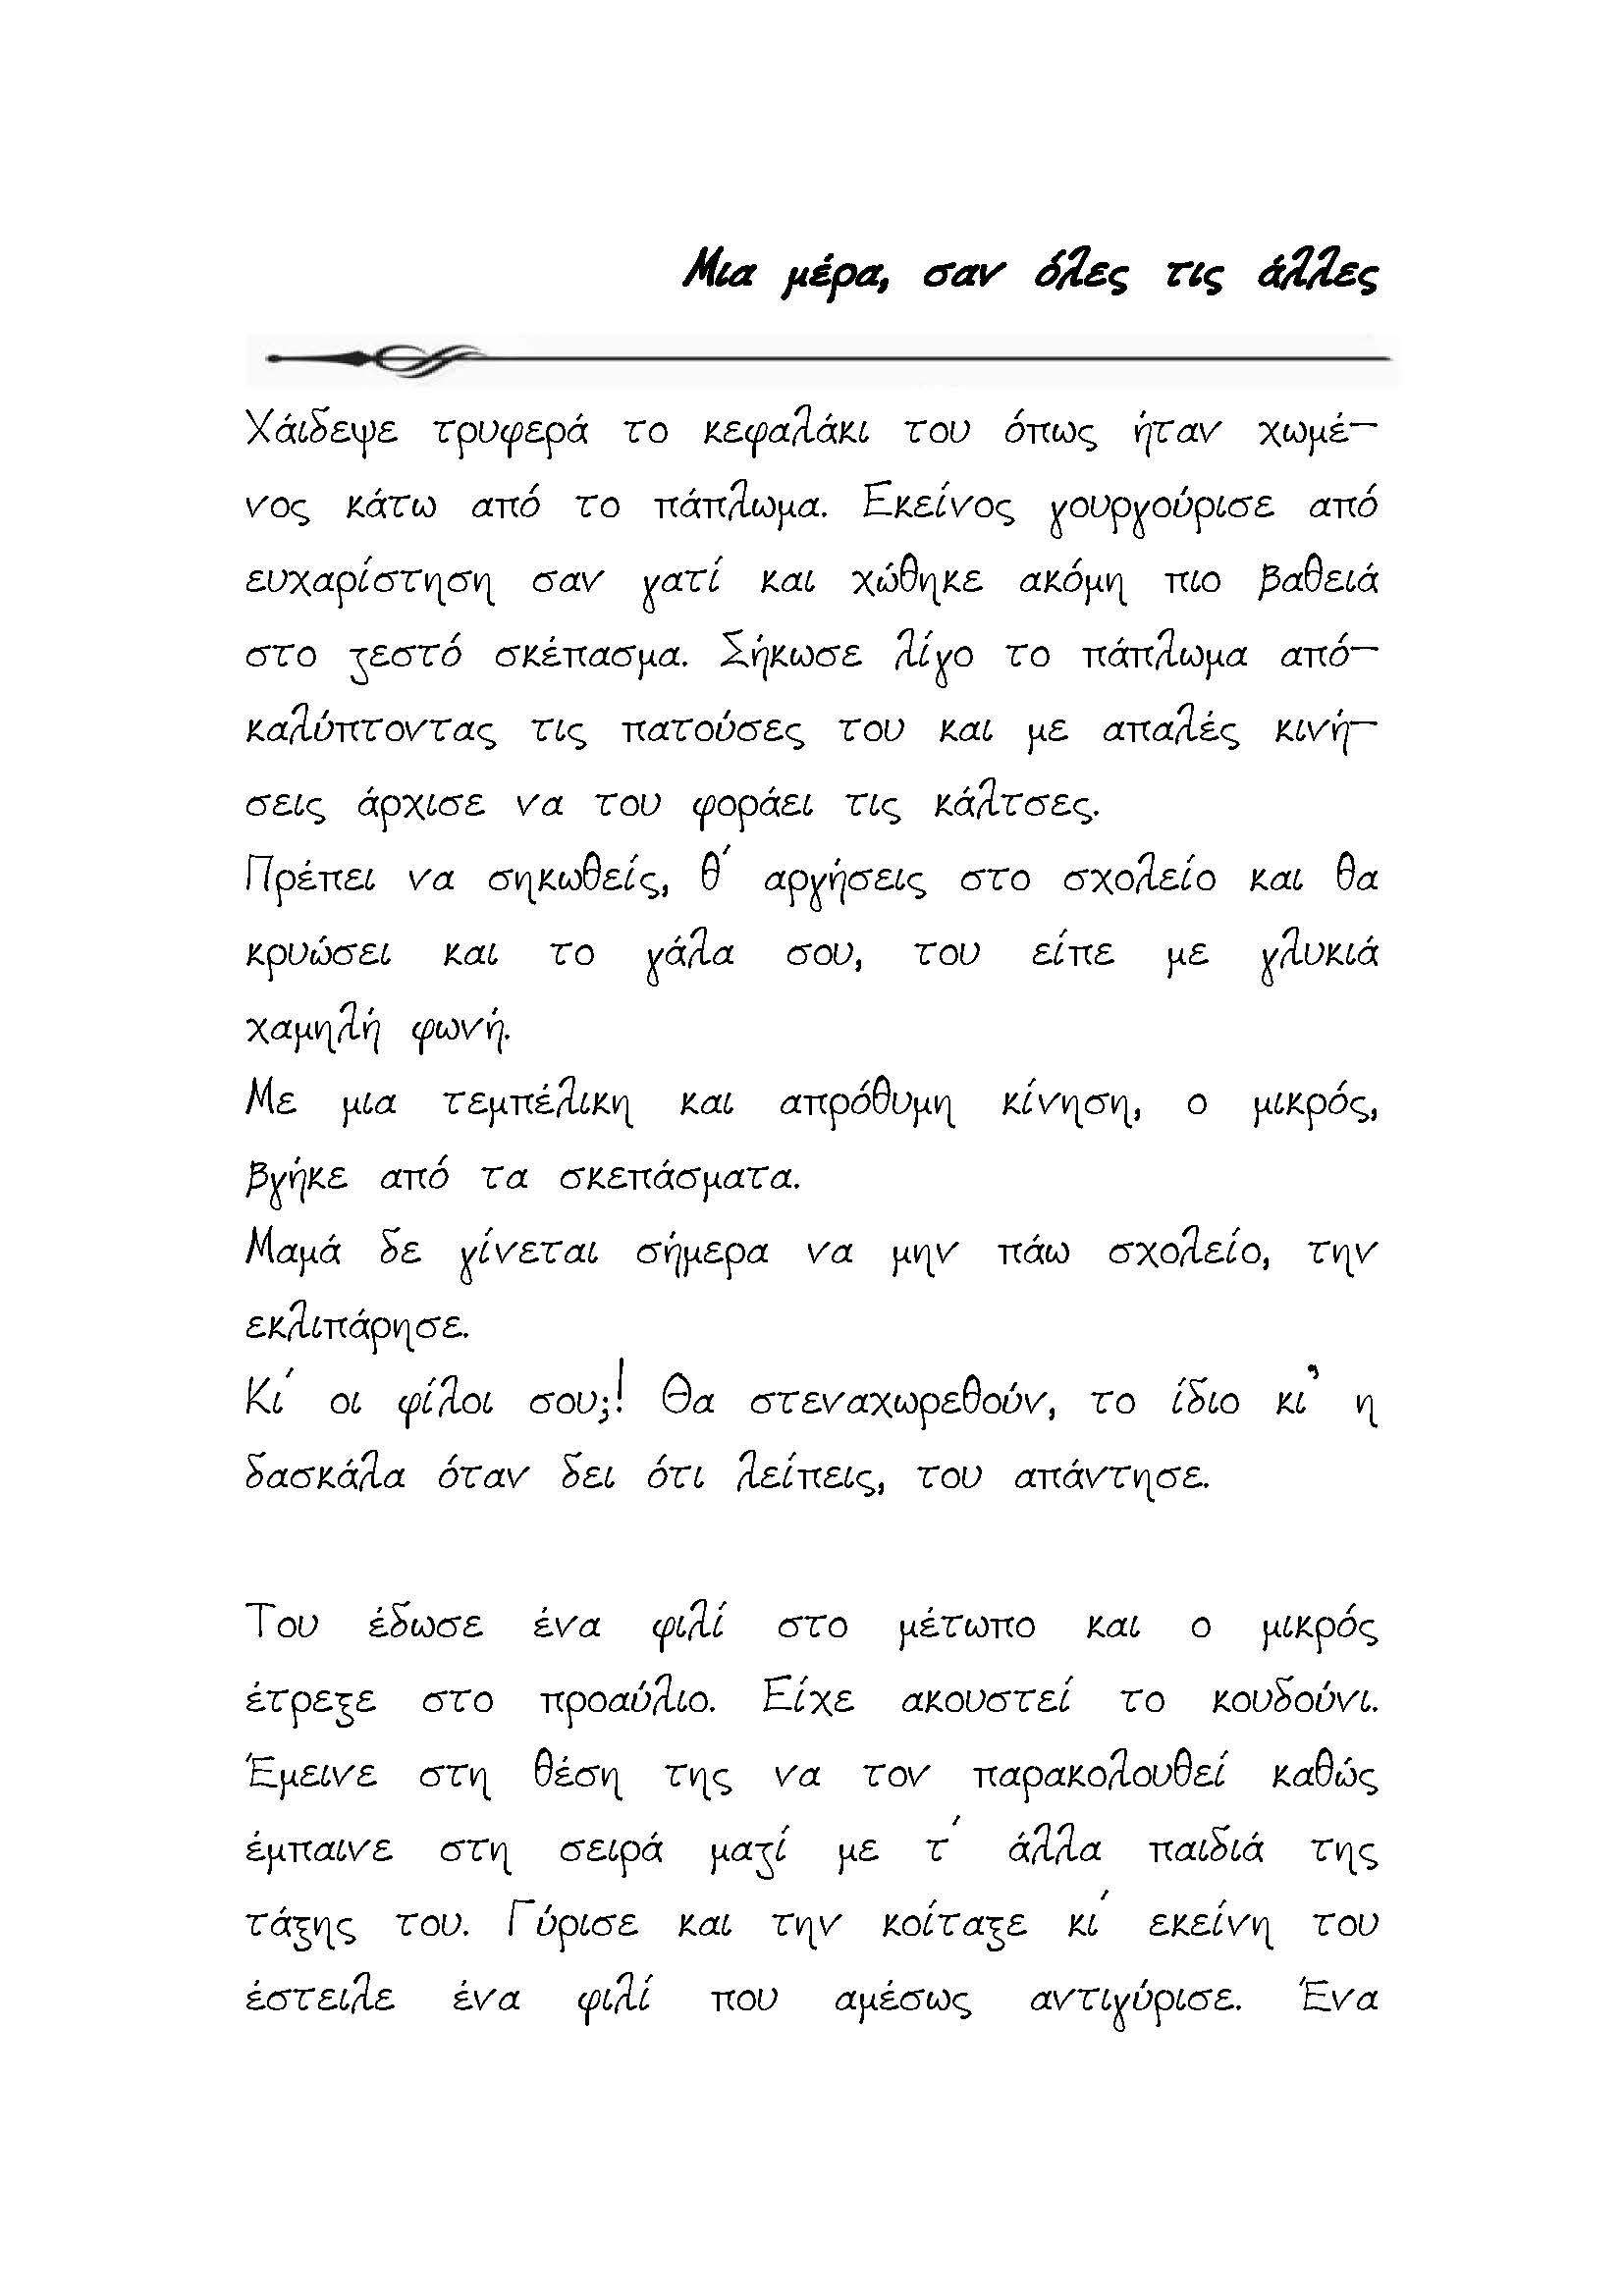 Μια μέρα, σαν όλες τις άλλες
Χάιδεψε τρυφερά το κεφαλάκι του όπως ήταν χωμέ-
νος κάτω από το πάπλωμα. Εκείνος γουργούρισε από
ευχαρίστηση σαν γατί και χώθηκε ακόμη πιο βαθειά
στο ζεστό σκέπασμα. Σήκωσε λίγο το πάπλωμα από-
καλύπτοντας τις πατούσες του και με απαλές κινή-
σεις άρχισε να του φοράει τις κάλτσες.
Πρέπει να σηκωθείς, θ΄ αργήσεις στο σχολείο και θα
κρυώσει και το γάλα σου, του είπε με γλυκιά
χαμηλή φωνή.
Με μια τεμπέλικη και απρόθυμη κίνηση, ο μικρός,
βγήκε από τα σκεπάσματα.
Μαμά δε γίνεται σήμερα να μην πάω σχολείο, την
εκλιπάρησε.
Κι΄ οι φίλοι σου;! Θα στεναχωρεθούν, το ίδιο κι’ η
δασκάλα όταν δει ότι λείπεις, του απάντησε.
Του έδωσε ένα φιλί στο μέτωπο και ο μικρός
έτρεξε στο προαύλιο. Είχε ακουστεί το κουδούνι.
Έμεινε στη θέση της να τον παρακολουθεί καθώς
έμπαινε στη σειρά μαζί με τ΄ άλλα παιδιά της
τάξης του. Γύρισε και την κοίταξε κι΄ εκείνη του
έστειλε ένα φιλί που αμέσως αντιγύρισε. Ένα